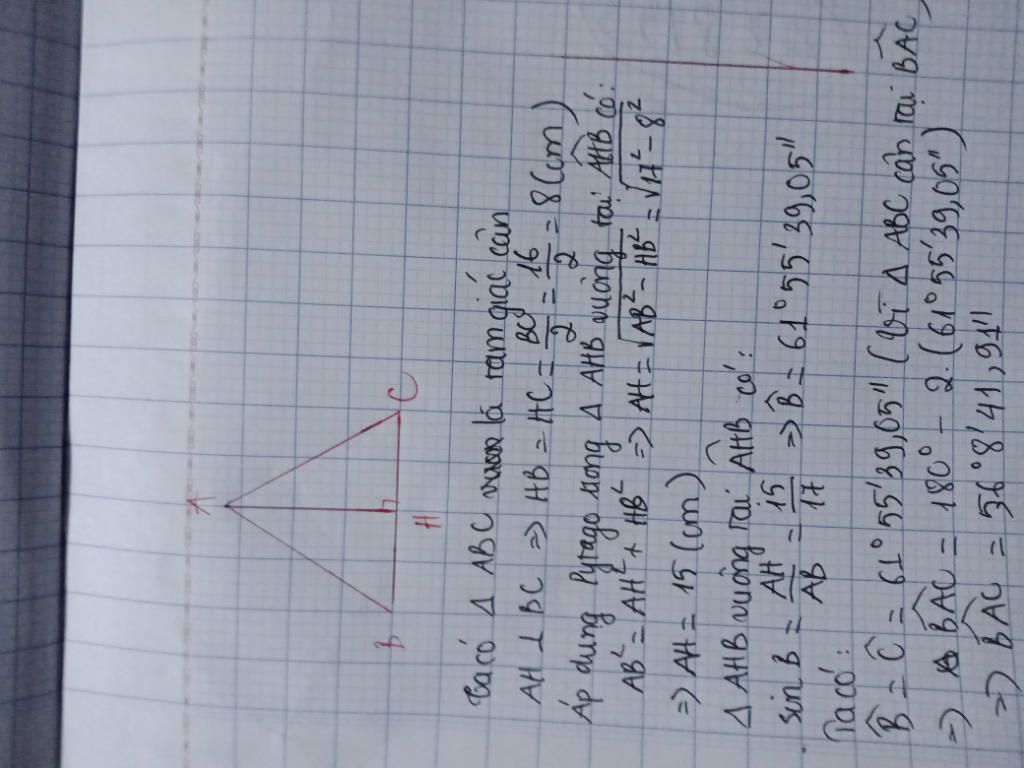 A
B
H
C
Ta có Δ ABC là tam giác cân
AH ⊥ BC => HB = HC = BC/2 = 16/2 = 8 (cm)
Áp dụng Pytago trong Δ AHB vuông tại AHB có:
AB² = AH² + HB² => AH = √AB² - HB² = √17² - 8²
=> AH = 15 (cm)
Δ AHB vuông tại AHB có:
sin B = AH/AB = 15/17 => B = 61° 55' 39,05"
Ta có:
B = C = 61° 55' 39,05" (Vì Δ ABC cân tại BAC)
=> BAC = 180° - 2. (61° 55' 39,05")
=> BAC = 56° 8' 41,91"